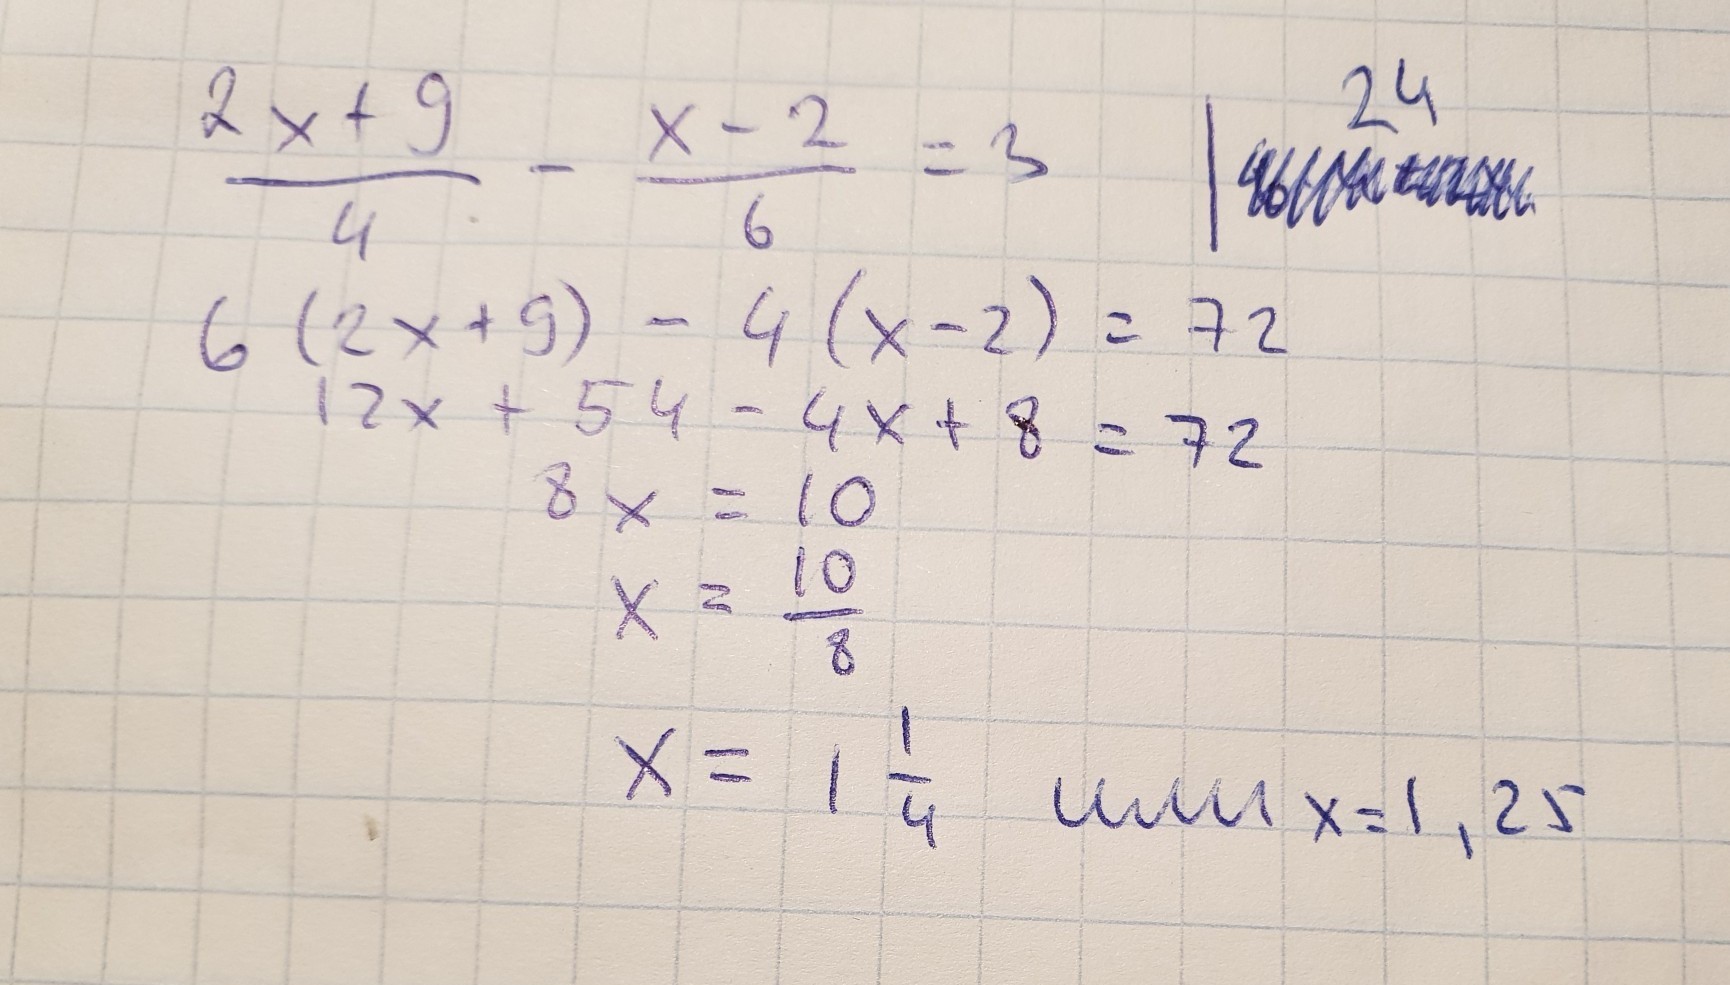 (2x+9)/4 - (x-2)/6 = 3 | 24
6 (2x+9) - 4 (x-2) = 72
12x + 54 - 4x + 8 = 72
8x = 10
x = 10/8
x = 1 1/4 или x=1,25